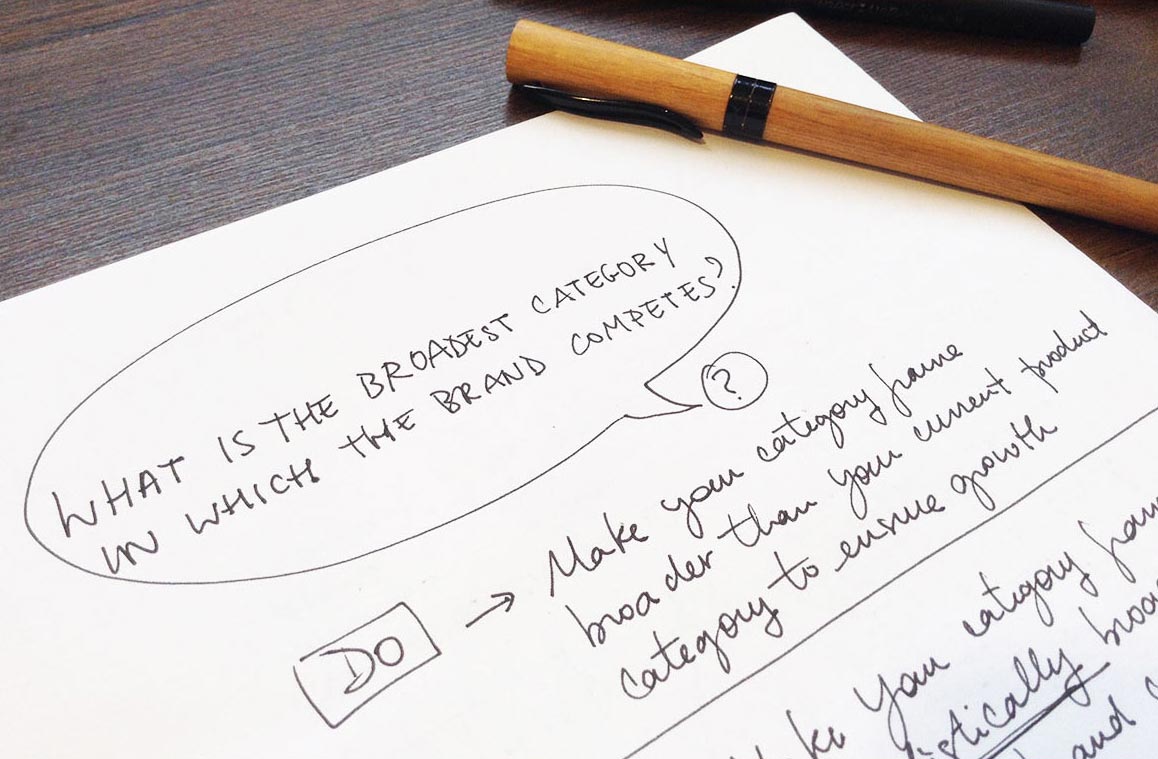 WHAT IS THE BROADEST CATEGORY
IN WHICH THE BRAND COMPETES?
?
DO → Make your category frame
broader than your current product
category to ensure growth
your category
and